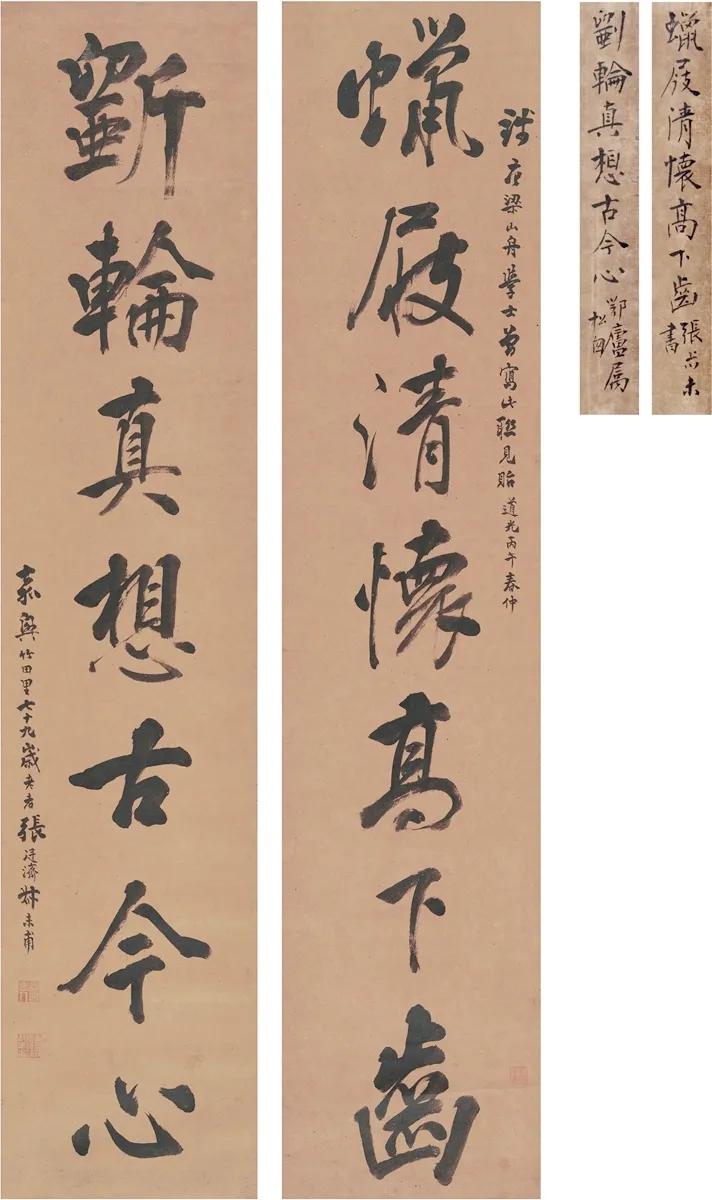 蠟屐清懷高下齒
錢唐梁山舟學士曾寫此聯見貽 道光丙午春仲
斲輪真想古今心
嘉興竹田里七十九歲老者張廷濟叔未甫
蠟屐清懷高下齒 張尗未書
斲輪真想古今心 鄂廬屬